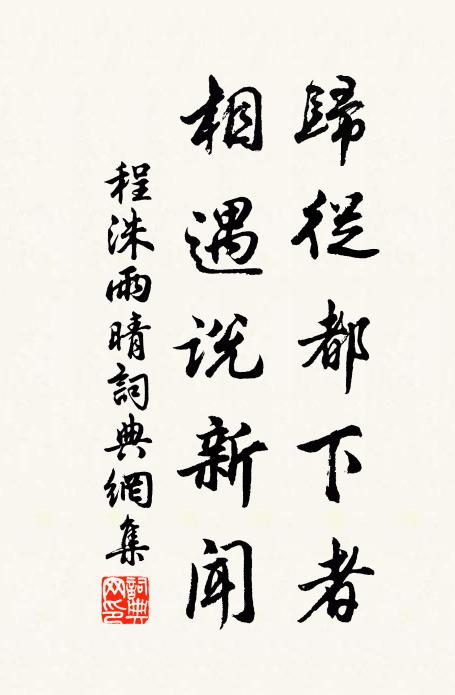 歸從都下者
相遇説新聞
程洙雨晴詞典網集
詞典網印